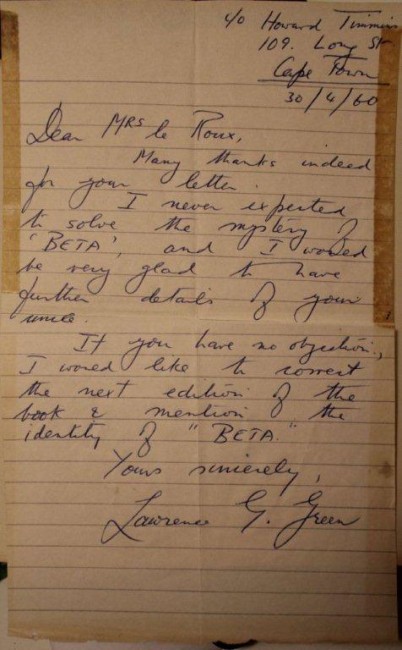 c/o Howard Timmins
109. Long St
Cape Town
30/4/60
Dear Mrs le Roux,
Many thanks indeed
for your letter.
I never expected
to solve the mystery of
"BETA", and I would
be very glad to have
further details of your
uncle.
If you have no objection,
I would like to correct
the next edition of the
book & mention the
identity of "BETA."
Yours sincerely,
Lawrence G. Green